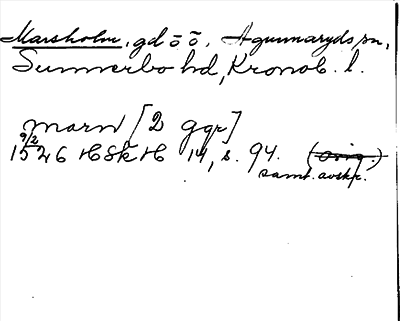 Marsholm, gd ō ō, Agunnaryds sn,
Sunnerbo hd, Kronob. l.
marn [2 ggr]
9/2
1526 HSkH 14, s. 94. (orig.)
samt. avskr.